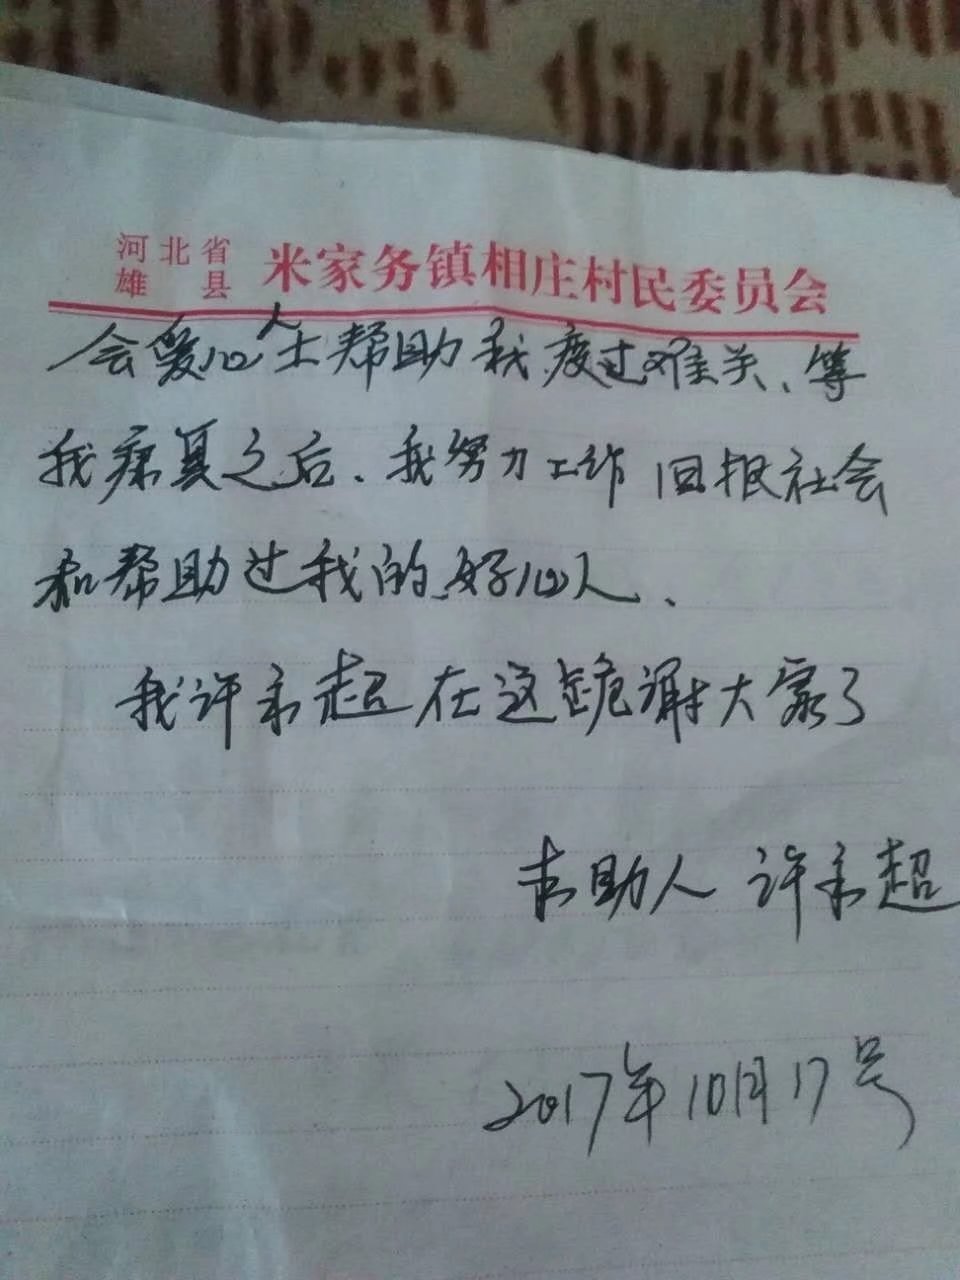 河北省
雄县
米家务镇相庄村民委员会
会爱心人士帮助我度过难关、等
我病复之后、我努力工作回报社会
和帮助过我的好心人、
我许永超在这跪谢大家了
求助人 许永超
2017年10月17号